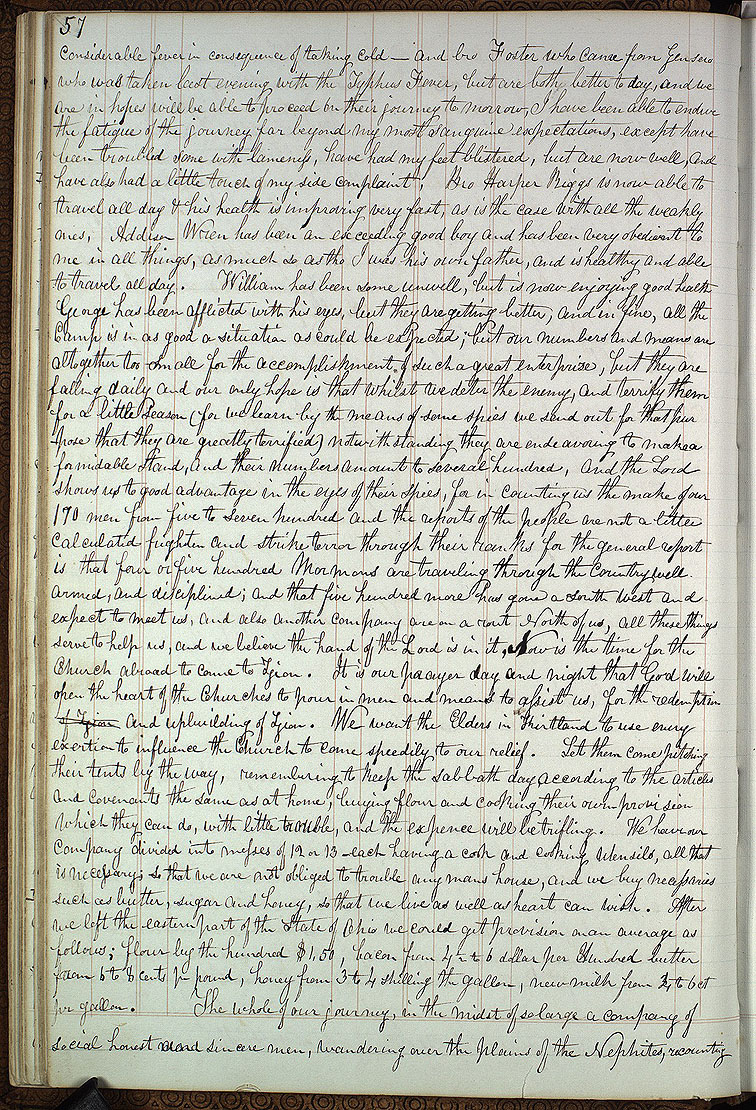 57
considerable fever in consequence of taking cold — and bro Foster who came from Genseo
who was taken last evening with the Typhus Fever, but are both better to day, and we
are in hopes will be able to proceed on their journey to morrow, I have been able to endure
the fatigue of the journey far beyond my most sanguine expectations, except have
been troubled some with lameness, have had my feet blistered, but are now well, and
have also had a little touch of my side complaint, Bro Harper Riggs is now able to
travel all day & his health is improving very fast, as is the case with all the weakly
ones, Addison Wren has been an exceeding good boy and has been very obedient to
me in all things, as much so as tho I was his own father, and is healthy and able
to travel all day. William has been some unwell, but is now enjoying good health
George has been afflicted with his eyes, but they are getting better, and in fine, all the
Camp is in as good a situation as could be expected; but our numbers and means are
altogether too small for the accomplishment of such a great enterprise, but they are
falling daily and our only hope is that whilst we deter the enemy, and terrify them
for a little season (for we learn by the means of some spies we send out for that pur
pose that they are greatly terrified) notwithstanding they are endeavoring to make a
formidable stand, and their numbers amount to several hundred, and the Lord
shows us to good advantage in the eyes of their spies, for in counting us the make of our
170 men from five to seven hundred and the reports of the people are not a little
calculated frighten and strike terror through their ranks for the general report
is that four or five hundred Mormons are traveling through the Country well
armed, and disciplined; and that five hundred more has gone a south west and
expect to meet us, and also another company are on a rout North of us, all these things
serve to help us, and we believe the hand of the Lord is in it, Now is the time for the
Church abroad to come to Zion. It is our prayer day and night that God will
open the heart of the Churches to pour in men and means to assist us, for the redemption
of Zion and upbuilding of Zion. We want the Elders in Kirtland to use every
exertion to influence the Church to come speedily to our relief. Let them come pitching
their tents by the way, remembering to keep the sabbath day according to the articles
and covenants the same as at home, buying flour and cooking their own provision
which they can do, with little trouble, and the expence will be trifling. We have our
Company divided into messes of 12 or 13 each having a cook and cooking utensils, all that
is necessary; so that we are not obliged to trouble any mans house, and we buy necessaries
such as butter, sugar and honey, so that we live as well as heart can wish. After
we left the eastern part of the State of Ohio we could get provision on an average as
follows; flour by the hundred $1,50, bacon from 4 to 6 dollar per hundred butter
from 6 to 8 cents pr pound, honey from 3 to 4 shilling the gallon, new milk from 2 to 6 ct
pr gallon. The whole of our journey, in the midst of so large a company of
social honest and sincere men, wandering over the plains of the Nephites, recounting